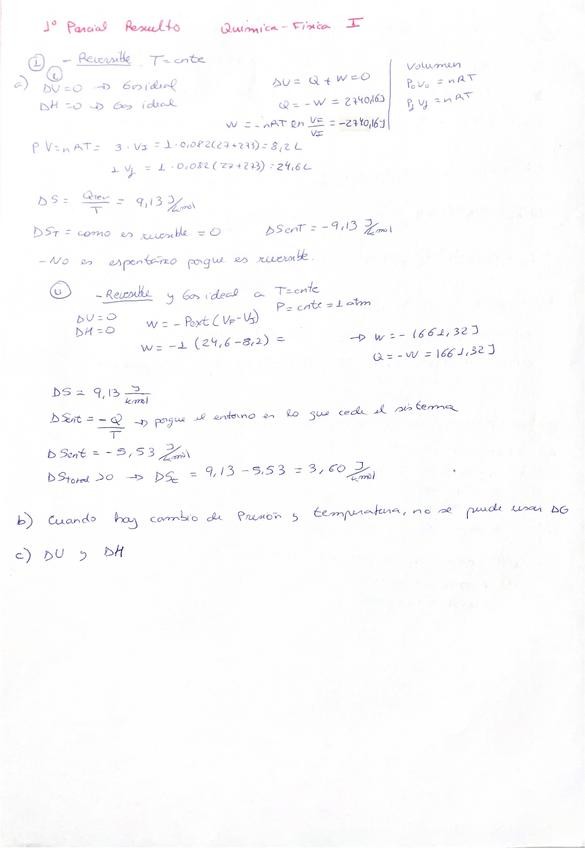 1º Parcial Resuelto Química-Física I
1 - Reversible T=cnte
a) i
ΔU=0 → Gas ideal
ΔH=0 → Gas ideal
ΔU = Q + W = 0
Q = -W = 2740,16J
W = -nRT ln VF/VI = -2740,16J
Volumen
P0V0 = nRT
PfVf = nRT
PV=nRT = 3·VI = 1·0,082(27+273) = 8,2L
1 Vf = 1·0,082(27+273) = 24,6L
ΔS = Qrev/T = 9,13 J/kmol
ΔST = como es reversible = 0 ΔSent = -9,13 J/kmol
- No es espontáneo porque es reversible.
ii - Reversible y Gas ideal a T=cnte
P=cnte = 1 atm
ΔU=0
ΔH=0
W = -Pext(VF-VI)
W = -1 (24,6-8,2) = → W = -1661,32J
Q = -W = 1661,32J
ΔS = 9,13 J/kmol
ΔSent = -Q/T → porque el entorno es lo que cede el sistema
ΔSent = -5,53 J/kmol
ΔStotal >0 → ΔSt = 9,13 - 5,53 = 3,60 J/kmol
b) Cuando hay cambio de Presión y temperatura, no se puede usar ΔG
c) ΔU y ΔH